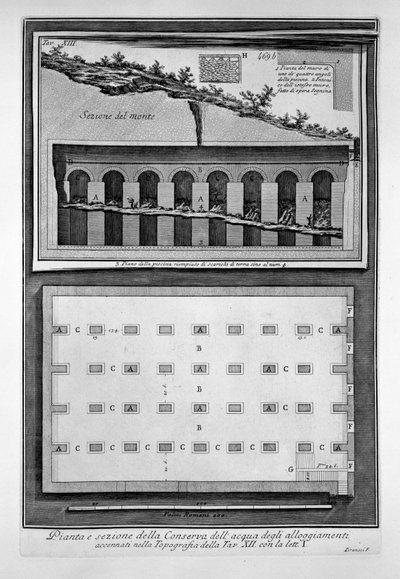 Tav. XIII
H
469 b
1 Pianta del muro di
uno de' quattro angoli
della piscina. 2 Veduta
dell'istesso muro,
fatto di opera Segnina.
Sezione del monte
D
B
D
A
A
A
3. Piano della piscina riempiuto di scarichi di terra sino al num. 4.
A C C C A C C C A
B
B
C A C C A C A C
B
C A C C A C A C
B
A C A C C A C C A C A
G
F
F
F
F
Palmi Romani 200.
Pianta e sezione della Conserva dell'acqua degli alloggiamenti
accennati nella Topografia della Tav. XII con la lett. Y.
Piranesi F.